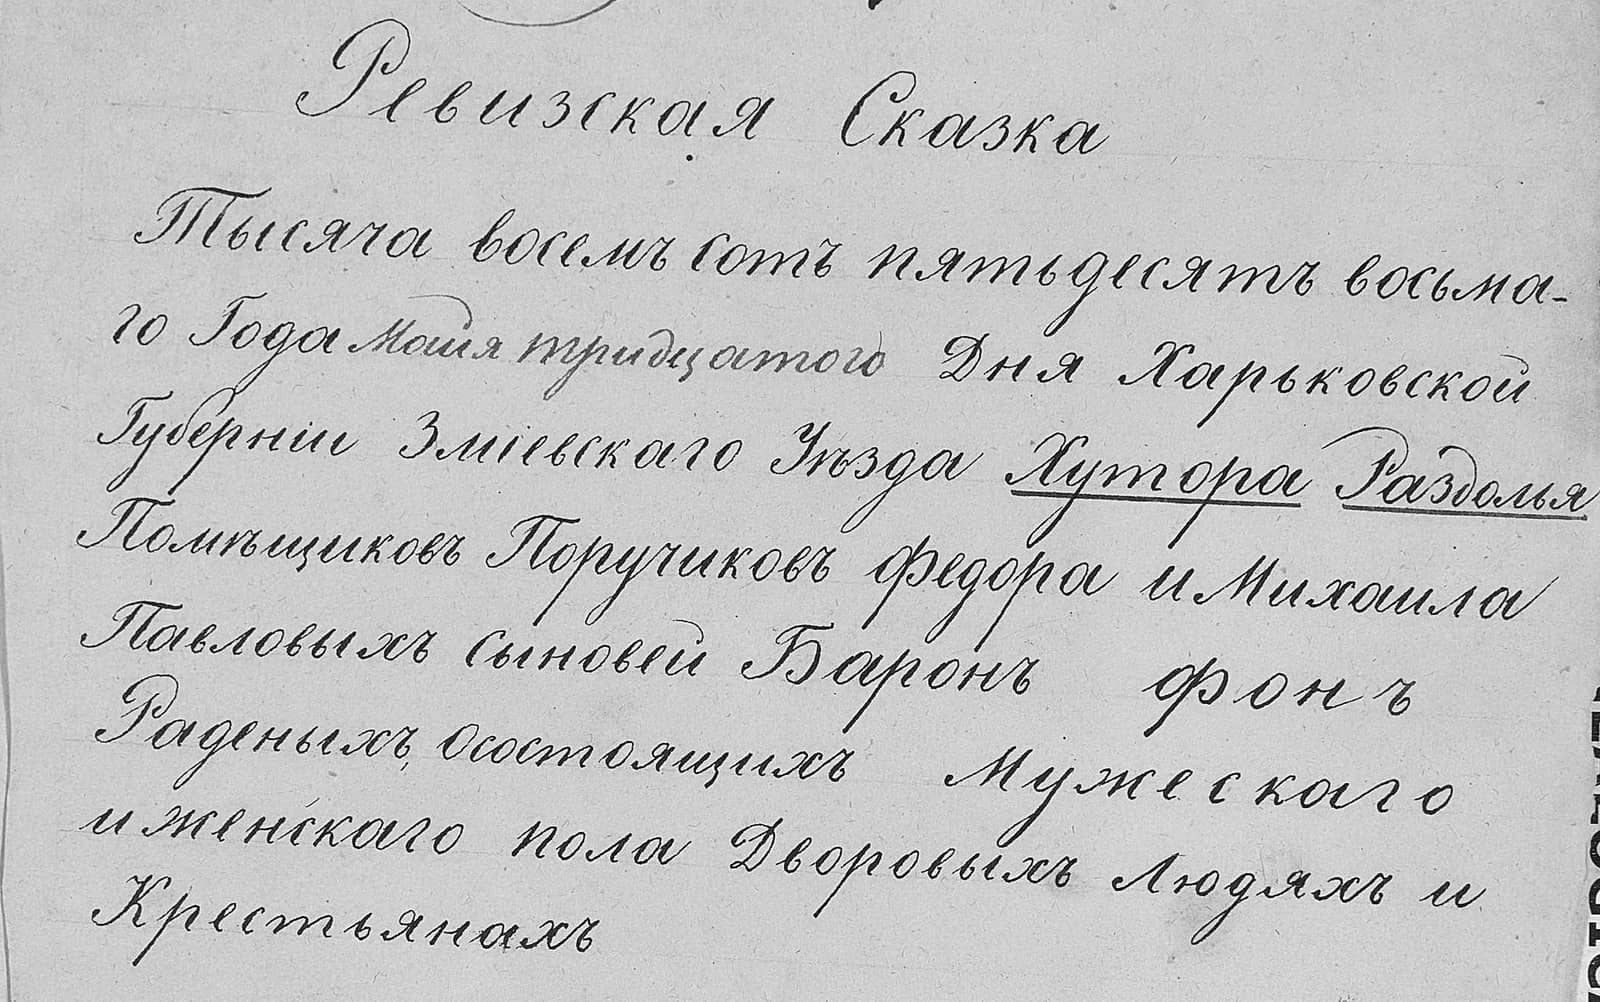 Ревизская Сказка
Тысяча восемъ сотъ пятьдесятъ восьма-
го Года Маия тридцатого Дня Харьковской
Губерніи Зміевскаго Уѣзда Хутора Раздолья
Помѣщиковъ Поручиковъ Федора и Михаила
Павловыхъ сыновей Баронъ фонъ
Раденыхъ, осостоящихъ Мужескаго
и женскаго пола Дворовыхъ Людяхъ и
Крестьянахъ